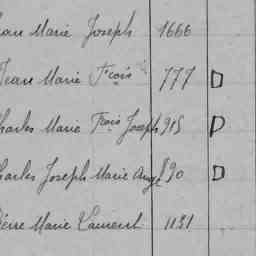 ean Marie Joseph 1666
Jean Marie Frçois 777 D
harles Marie Frçois Joseph 915 D
harles Joseph Marie Ange 890 D
Pierre Marie Laurent 1131